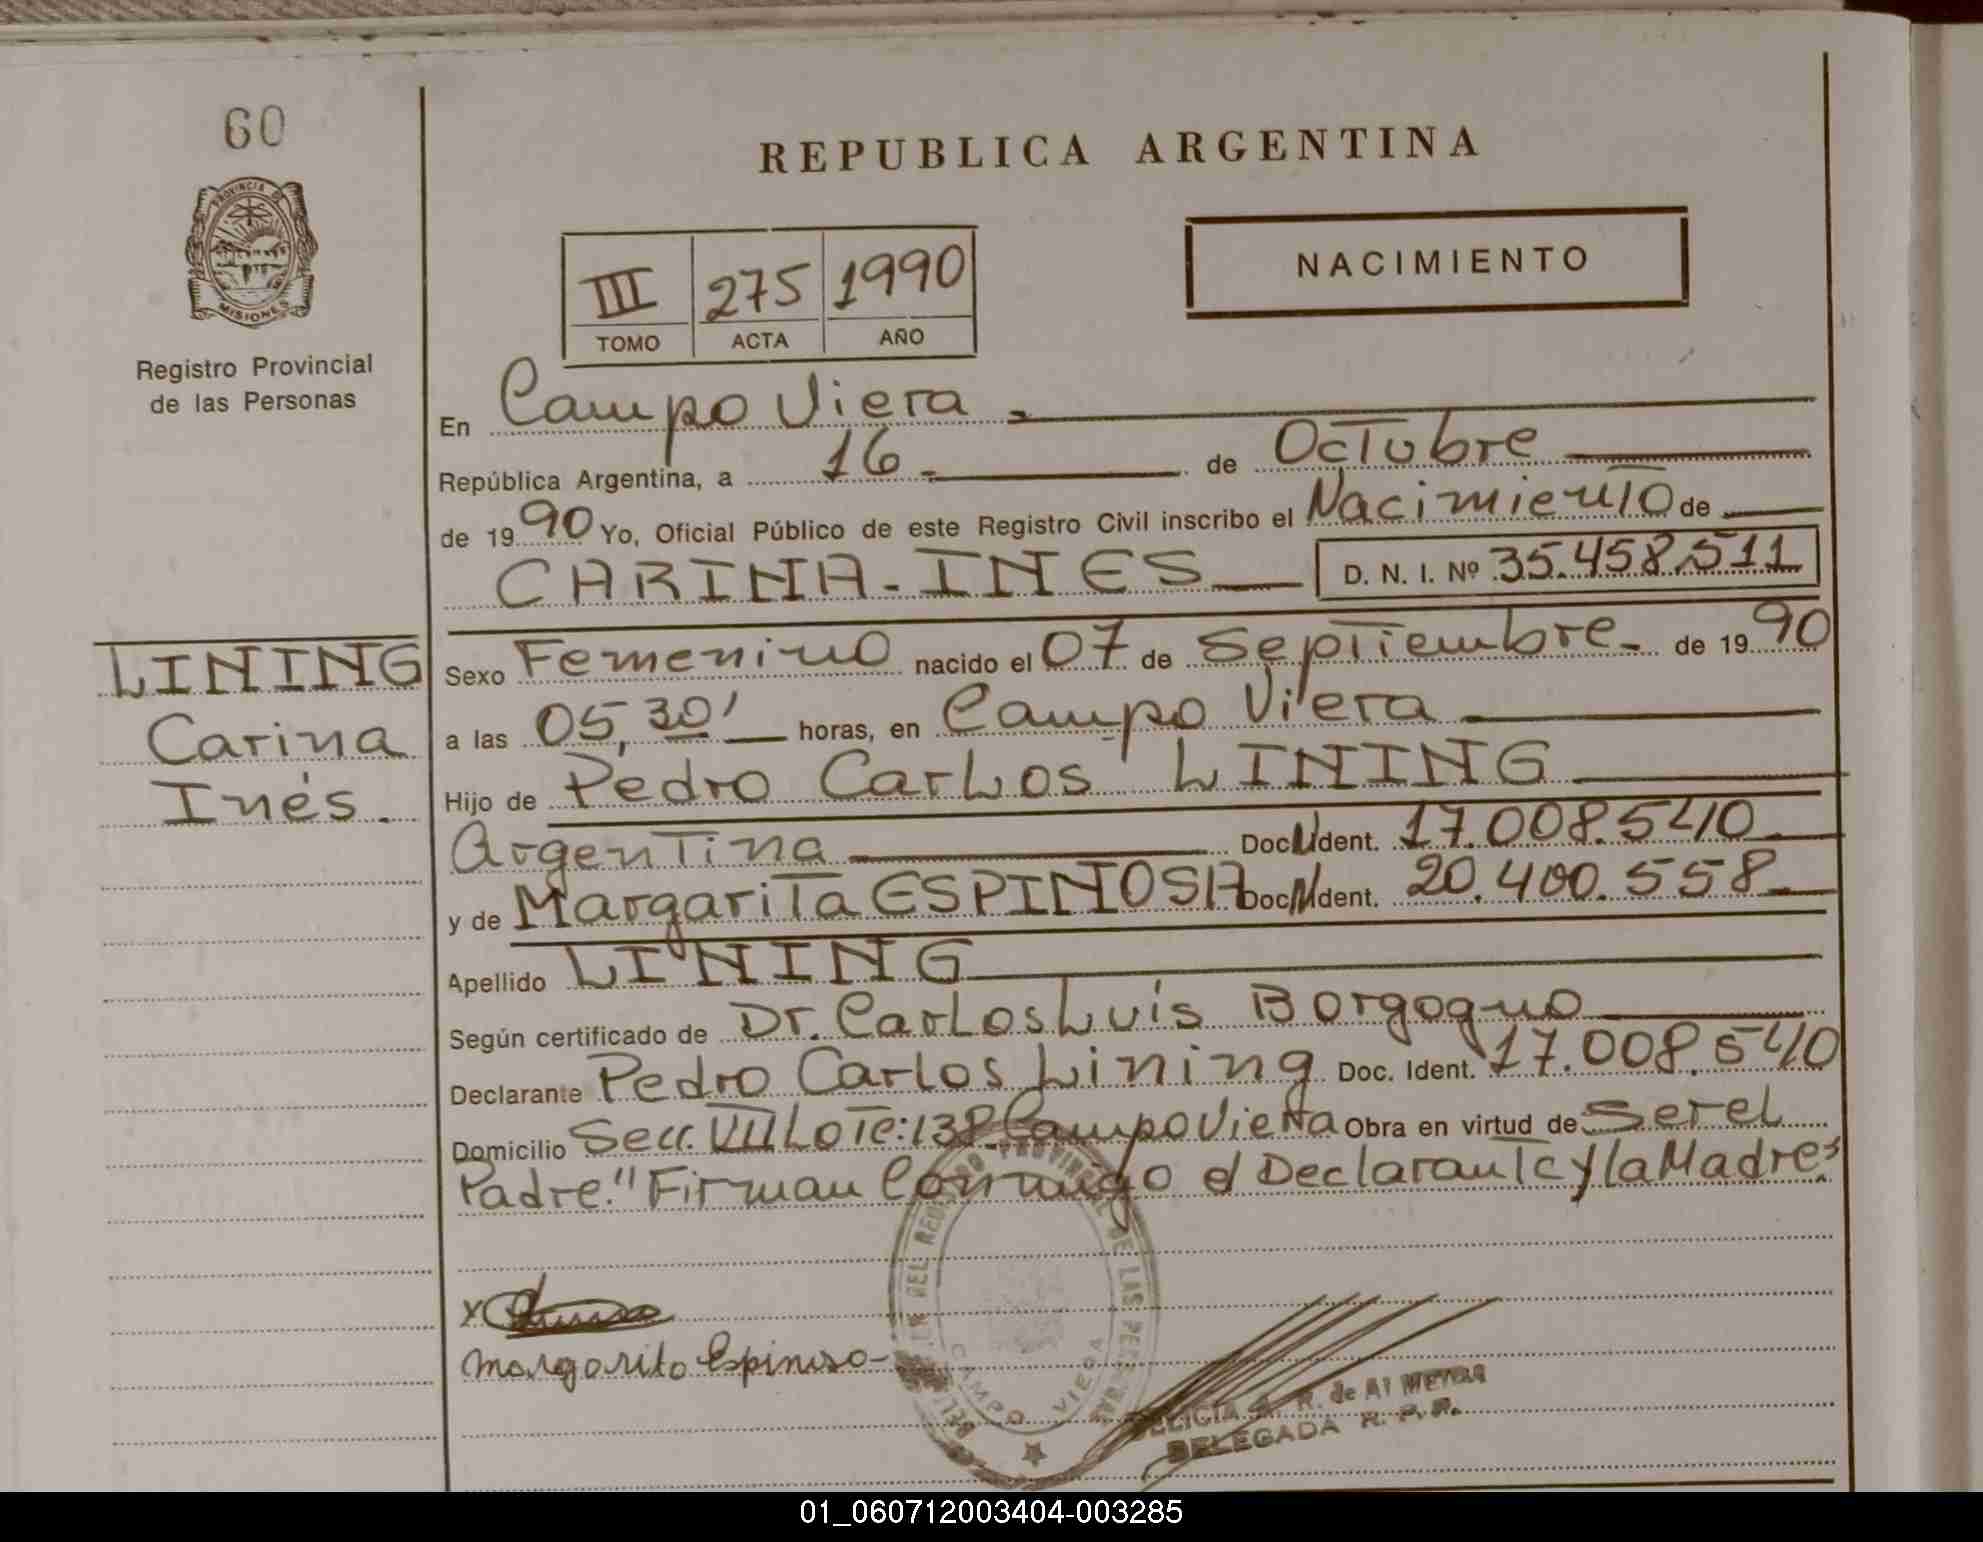 60
PROVINCIA DE
MISIONES
Registro Provincial
de las Personas
REPUBLICA ARGENTINA
III 275 1990
TOMO ACTA AÑO
NACIMIENTO
En Campo Viera.
República Argentina, a 16. de Octubre
de 1990 Yo, Oficial Público de este Registro Civil inscribo el Nacimiento de
CARINA-INES D. N. I. Nº 35.458.511
LINING
Carina
Inés.
Sexo Femenino nacido el 07 de Septiembre. de 1990
a las 05,30' horas, en Campo Viera
Hijo de Pedro Carlos LINING
Argentina Doc. Ident. 17.008.540
y de Margarita ESPINOSA Doc. Ident. 20.400.558
Apellido LINING
Según certificado de Dr. Carlos Luís Borgogno
Declarante Pedro Carlos Lining Doc. Ident. 17.008.540
Domicilio Secc. VIII Lote: 138 Campo Viera Obra en virtud de Ser el
Padre." Firman Conmigo el Declarante y la Madre"
REGISTRO PROVINCIAL DE LAS PERSONAS
CAMPO VIERA
x
Margarita Espinosa-
R. de
DELEGADA R. P. P.
01_060712003404-003285